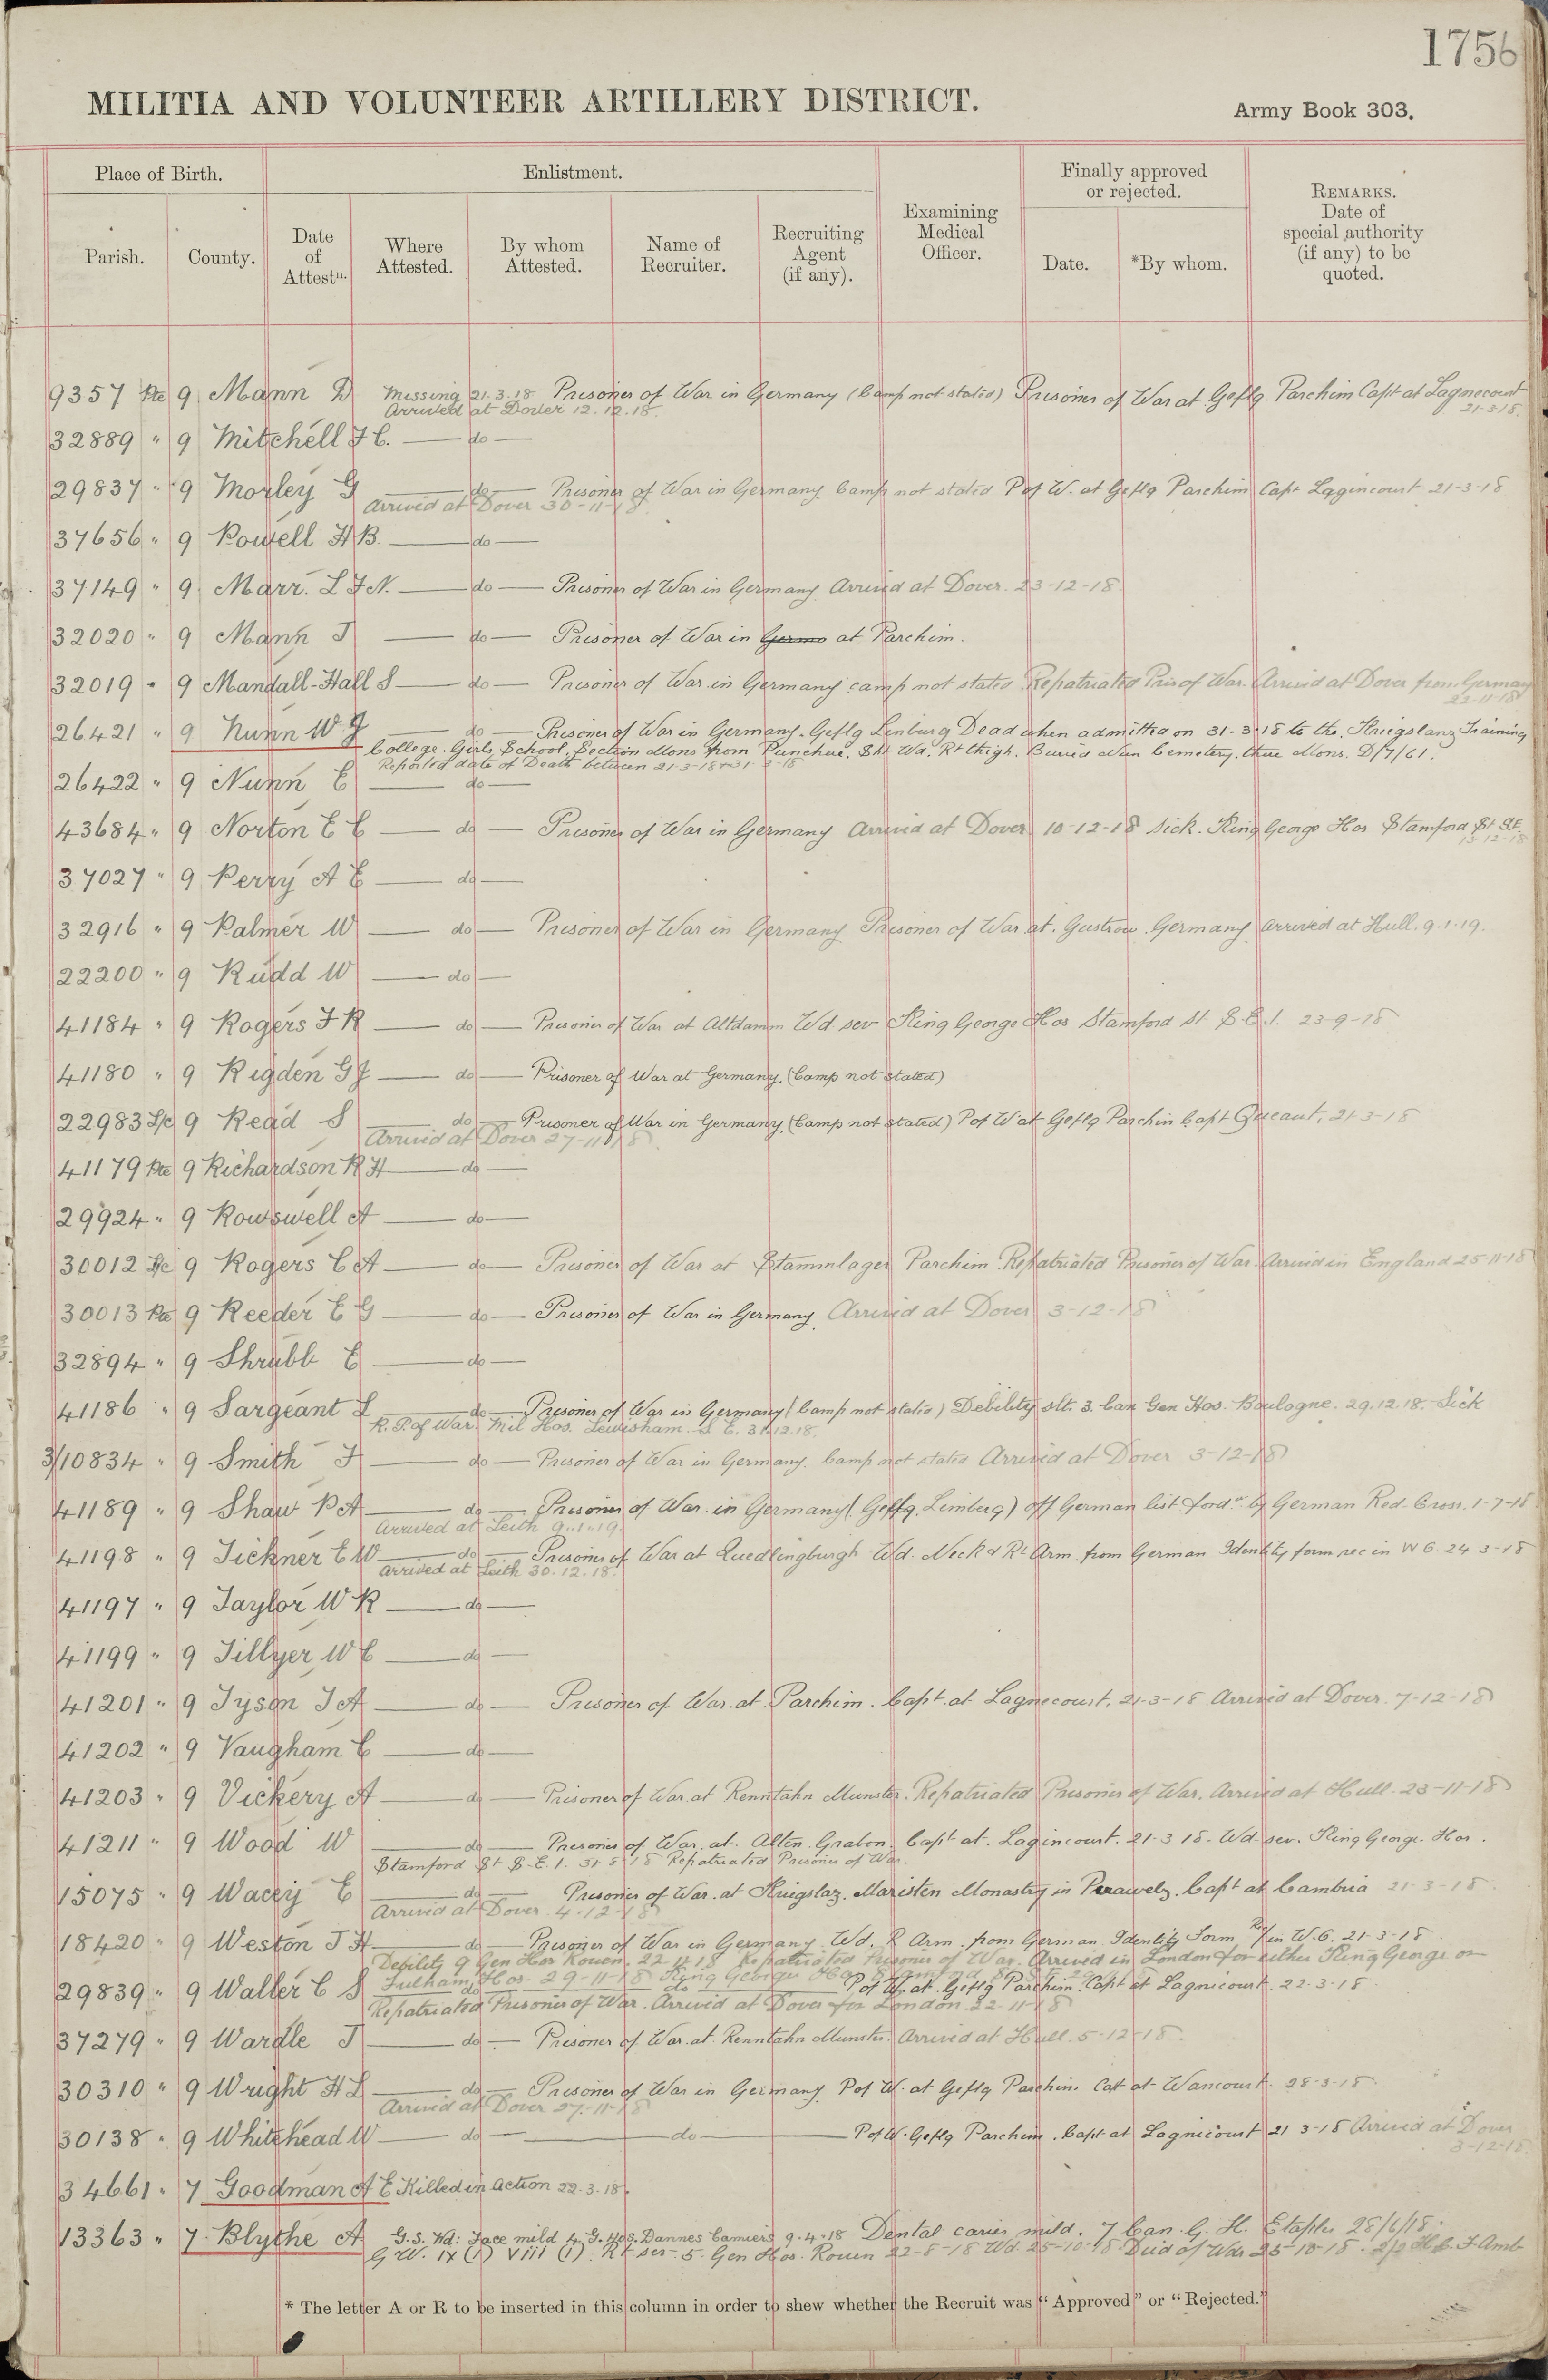 1756
MILITIA AND VOLUNTEER ARTILLERY DISTRICT.
Army Book 303.
Place of Birth.
Enlistment.
Finally approved
or rejected.
Parish.
County.
Date
of
Attestn.
Where
Attested.
By whom
Attested.
Name of
Recruiter.
Recruiting
Agent
(if any).
Examining
Medical
Officer.
Date.
*By whom.
REMARKS.
Date of
special authority
(if any) to be
quoted.
9357 Pte 9 Mann D Missing 21.3.18 Prisoner of War in Germany (Camp not stated) Prisoner of War at Geflg. Parchim Capt at Lagnecourt
Arrived at Dover 12.12.18. 21-3-18.
32889 " 9 Mitchell F C. — do —
29837 " 9 Morley G — do — Prisoner of War in Germany Camp not stated P of W. at Geflg Parchim Capt Lagincourt 21-3-18
Arrived at Dover 30-11-18
37656 " 9 Powell H B. — do —
37149 " 9 Marr. L F N. — do — Prisoner of War in Germany Arrived at Dover. 23-12-18
32020 " 9 Mann J — do — Prisoner of War in Germa at Parchim.
32019 " 9 Mandall-Hall S — do — Prisoner of War in Germany camp not stated Repatriated Pris of War. Arrived at Dover from Germany
22-11-18
26421 " 9 Nunn W J — do — Prisoner of War in Germany. Geflg Limburg Dead when admitted on 31-3-18 to the Kriegslanz Training
College. Girls School. Section Mons from Puncture. Sht Wd. Rt thigh. Buried Nun Cemetery. there Mons. D/7/61.
Reported date of Death between 21-3-18 & 31-3-18
26422 " 9 Nunn E — do —
43684 " 9 Norton E C — do — Prisoner of War in Germany Arrived at Dover 10-12-18 Sick. King George Hos Stamford St S.E.
13-12-18
37027 " 9 Perry A E — do —
32916 " 9 Palmer W — do — Prisoner of War in Germany Prisoner of War at. Gustrow. Germany Arrived at Hull. 9.1.19.
22200 " 9 Rudd W — do —
41184 " 9 Rogers F R — do — Prisoner of War at Altdamm Wd sev King George Hos Stamford St S.E.1. 23-9-18
41180 " 9 Rigden G J — do — Prisoner of War at Germany. (Camp not stated)
22983 L/c 9 Read S — do — Prisoner of War in Germany. (Camp not stated) P of W at Geflg Parchim Capt Queant. 21-3-18
Arrived at Dover 27-11-18
41179 Pte 9 Richardson R H — do —
29924 " 9 Rowswell A — do —
30012 L/c 9 Rogers C A — do — Prisoner of War at Stammlager Parchim. Repatriated Prisoner of War Arrived in England 25-11-18
30013 Pte 9 Reeder E G — do — Prisoner of War in Germany Arrived at Dover 3-12-18
32894 " 9 Shrubb E — do —
41186 " 9 Sargeant L — do — Prisoner of War in Germany (Camp not stated) Debility slt. 3. Can Gen Hos. Boulogne. 29.12.18. Sick
R. P. of War. Mil Hos. Lewisham. S E. 31.12.18.
3/10834 " 9 Smith F — do — Prisoner of War in Germany. Camp not stated Arrived at Dover 3-12-18
41189 " 9 Shaw P A — do — Prisoner of War. in Germany (Geflg. Limberg) off German list ford by German Red Cross. 1-7-18
Arrived at Leith 9.1.19
41198 " 9 Tickner E W — do — Prisoner of War at Quedlingburgh Wd. Neck & Rt Arm. from German Identity form rec in W O. 24 3-18
Arrived at Leith 30.12.18.
41197 " 9 Taylor W R — do —
41199 " 9 Tillyer W C — do —
41201 " 9 Tyson J A — do — Prisoner of War. at Parchim. Capt. at Lagnecourt. 21-3-18 Arrived at Dover. 7-12-18
41202 " 9 Vaugham C — do —
41203 " 9 Vickery A — do — Prisoner of War. at Renntahn Munster. Repatriated Prisoner of War. Arrived at Hull. 23-11-18
41211 " 9 Wood W — do — Prisoner of War. at. Alten. Grabon. Capt at. Lagincourt. 21-3 18. Wd sev. King George. Hos.
Stamford St S.E.1. 31 8 18 Repatriated Prisoner of War.
15075 " 9 Wacey E — do — Prisoner of War. at Kriegslaz. Maristen Monastry in Capt at Cambria 21-3-18.
Arrived at Dover. 4-12-18
18420 " 9 Weston J H — do — Prisoner of War in Germany. Wd. R Arm. from German Identity Form. in W.O. 21-3-18.
Debility 9 Gen Hos Rouen. 22 11 18 Repatriated Prisoner of War. Arrived in London for either King George or
Fulham Hos. 29-11-18 King George Hos Stamford St
29839 " 9 Waller C S — do — do — P of W. at. Geflg Parchim. Capt at Lagnicourt. 22-3-18.
Repatriated Prisoner of War. Arrived at Dover for London 22-11-18
37279 " 9 Wardle J — do — Prisoner of War. at. Renntahn Munster. Arrived at Hull. 5-12-18.
30310 " 9 Wright H L — do — Prisoner of War in Germany P of W. at Geflg Parchim. Capt at Wancourt. 28-3-18.
Arrived at Dover 27-11-18
30138 " 9 Whitehead W — do — do — P of W. Geflg Parchim. Capt at Lagnicourt 21 3-18 Arrived at Dover
3-12-18.
34661 " 7 Goodman A E Killed in Action 22.3.18.
13363 " 7 Blythe A G.S. Wd: Face mild 4 G. Hos. Dannes Camiers 9.4.18 Dental caries mild. 7 Can. G. H. Etaples 28/6/18.
G W. IX (1) VIII (1). Rt ser 5. Gen Hos. Rouen 22-8-18 Wd. 25-10-18 Died of Wds 25-10-18. 2/2 H.C. F Amb
* The letter A or R to be inserted in this column in order to shew whether the Recruit was "Approved" or "Rejected."